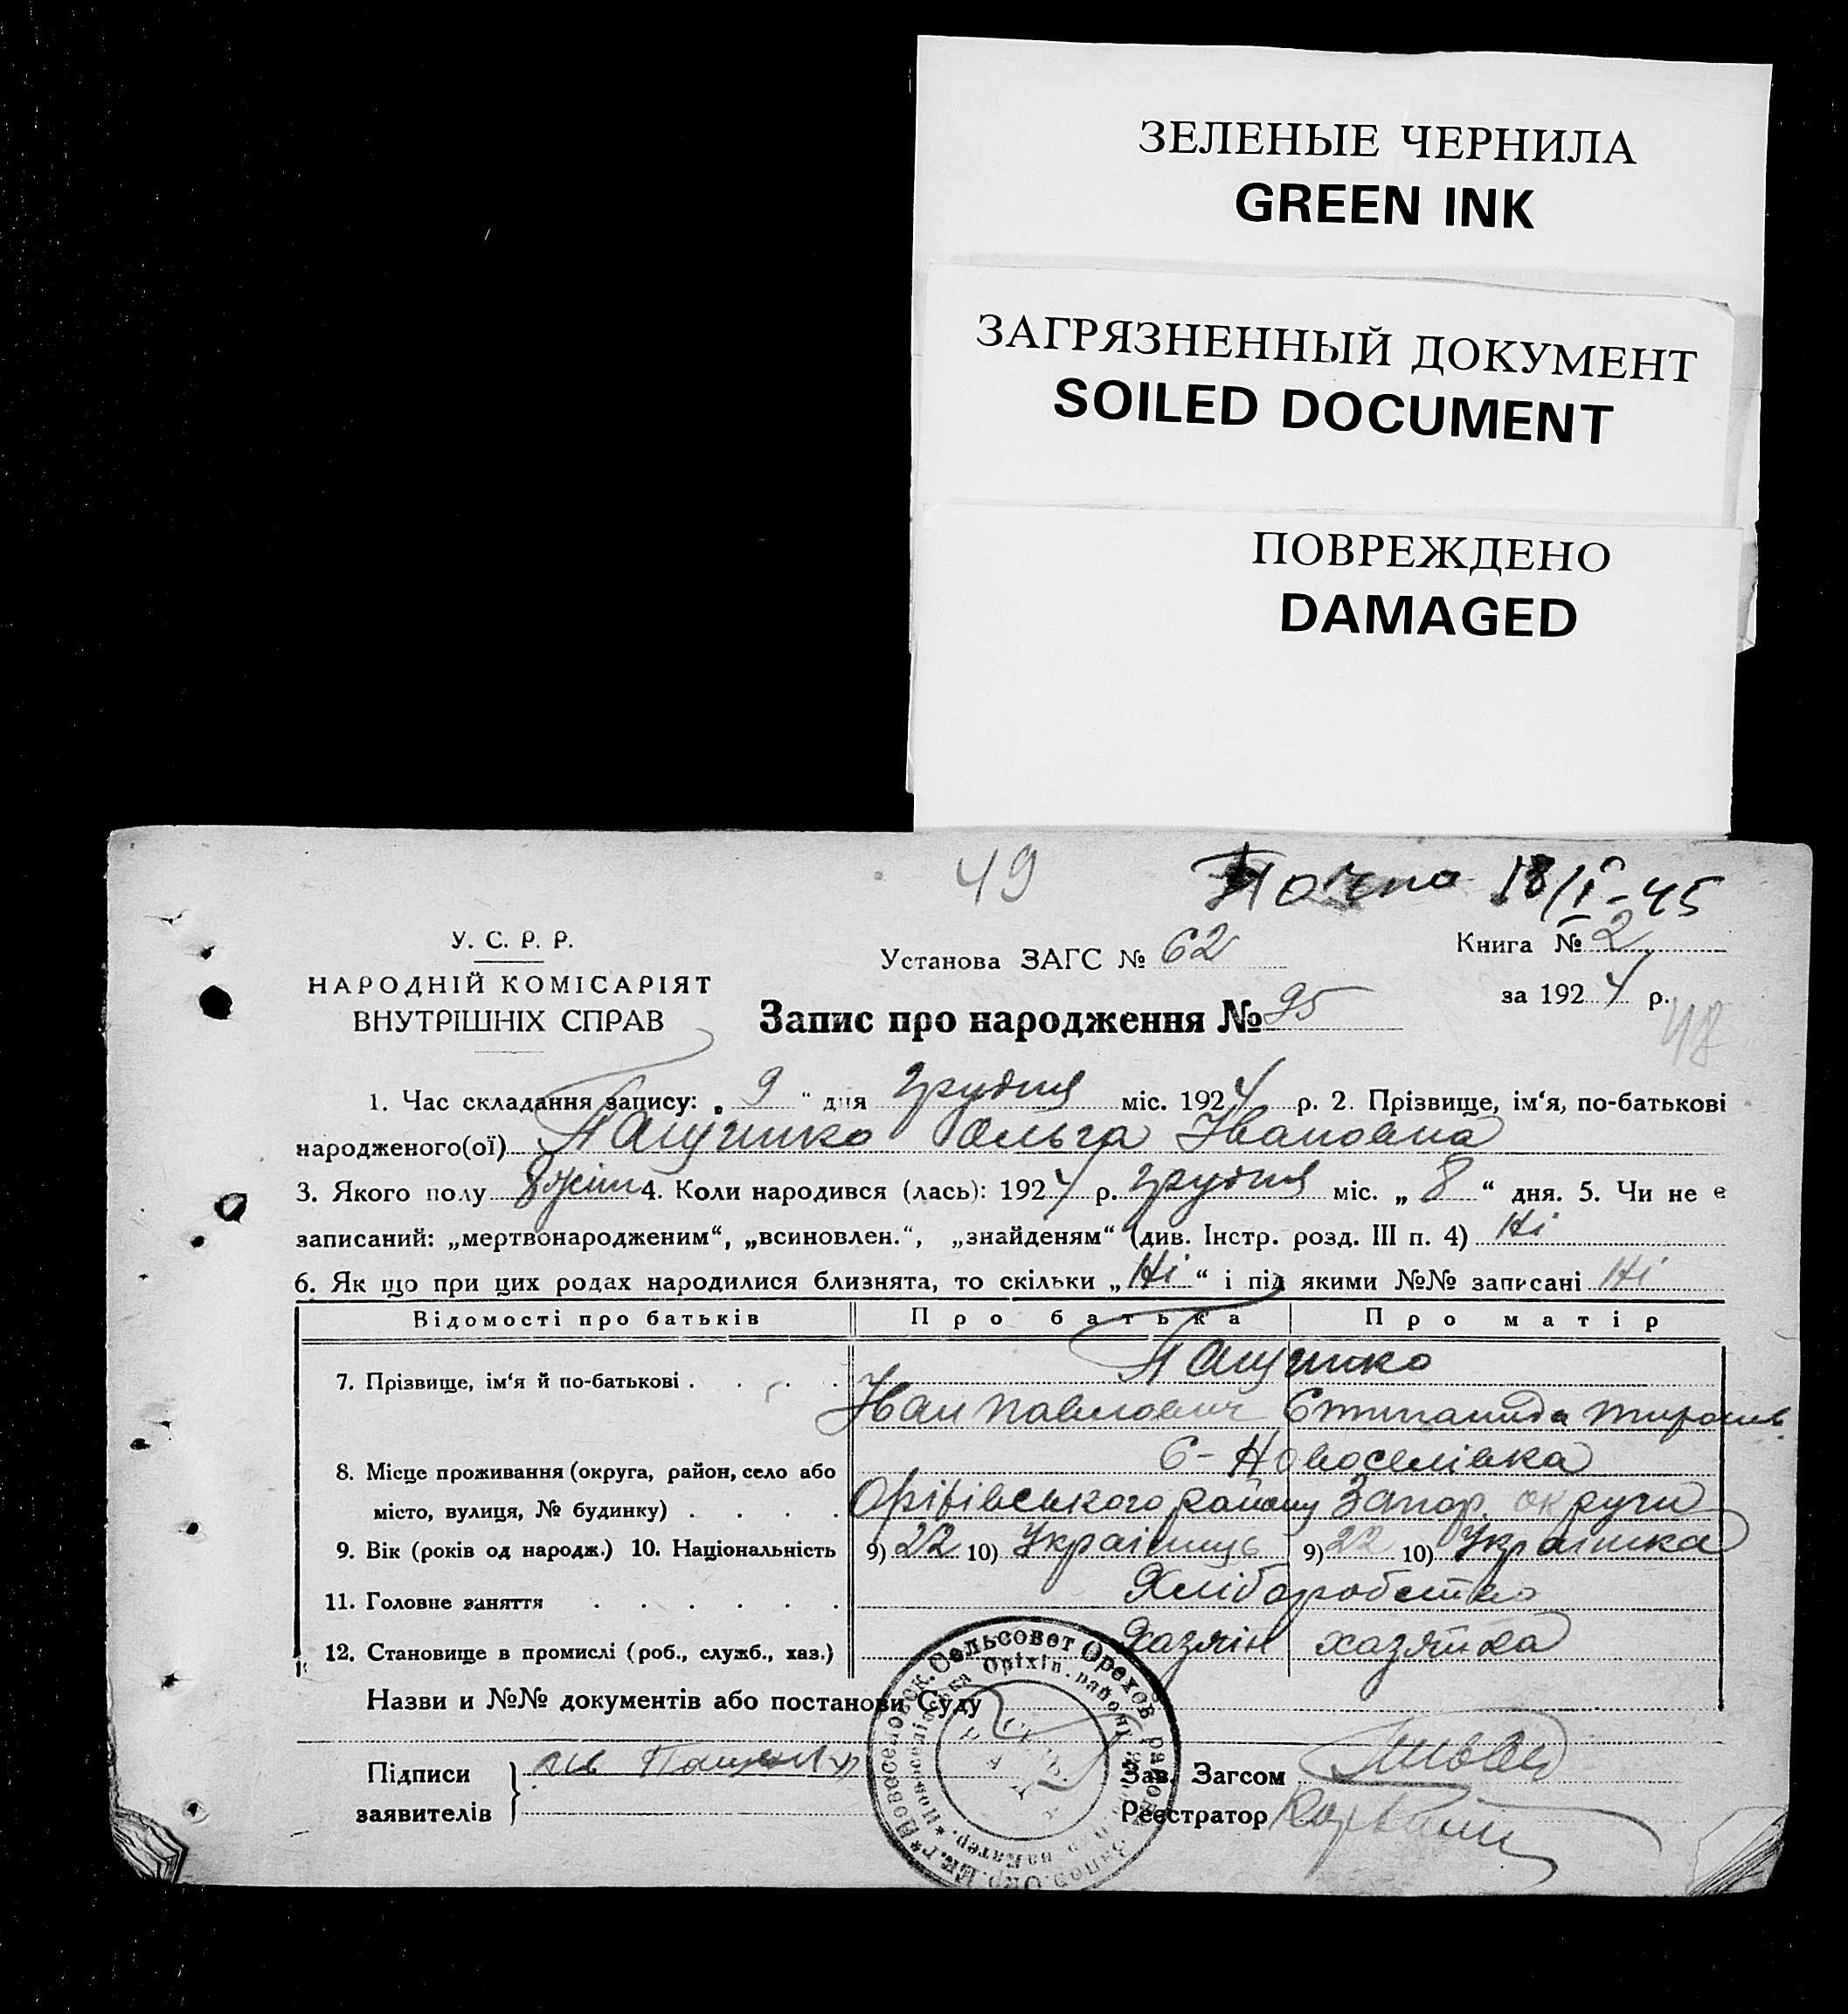 ЗЕЛЕНЫЕ ЧЕРНИЛА
GREEN INK
ЗАГРЯЗНЕННЫЙ ДОКУМЕНТ
SOILED DOCUMENT
ПОВРЕЖДЕНО
DAMAGED
49
18/I-45
У. С. Р. Р.
НАРОДНІЙ КОМІСАРІЯТ
ВНУТРІШНІХ СПРАВ
Установа ЗАГС № 62
Книга № 2
за 1924 р.
Запис про народження № 95
1. Час складання запису: „9“ дня Грудня міс. 1924 р. 2. Прізвище, ім‘я, по-батькові
народженого(ої) Ольга Івановна
3. Якого полу жін 4. Коли народився (лась): 1924 р. грудня міс. „8“ дня. 5. Чи не є
записаний: „мертвонародженим“, „всиновлен.“, „знайденям“ (див. Інстр. розд. III п. 4) Ні
6. Як що при цих родах народилися близнята, то скільки „Ні“ і під якими №№ записані Ні
Відомості про батьків Про батька Про матір
7. Прізвище, ім‘я й по-батькові
Іван Павлович
8. Місце проживання (округа, район, село або С-Новоселівка
місто, вулиця, № будинку) Оріхівського району Запор. округи
9. Вік (років од народж.) 10. Національність 9) 22 10) Українець 9) 22 10) Українка
11. Головне заняття Хліборобство
12. Становище в промислі (роб., служб., хаз.) Хазяін хазяйка
Назви и №№ документів або постанови Суду
Підписи
заявителів
Зав. Загсом
Реєстратор
Новоселовск. Сельсовет Орехов района
Новоселівська Оріхів. району